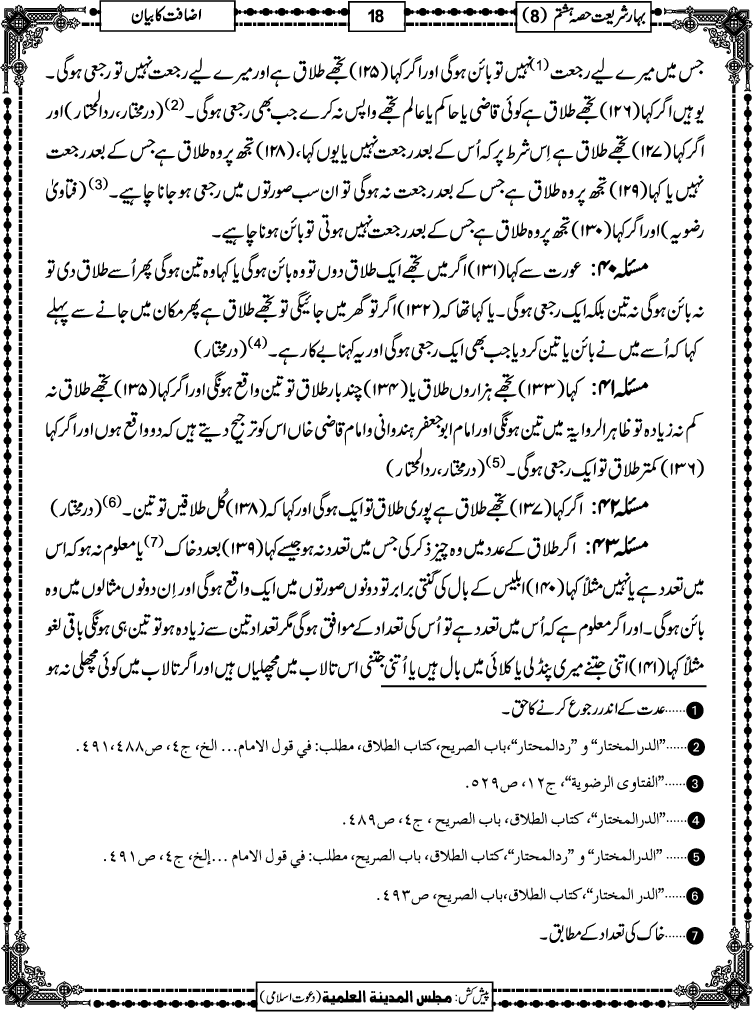 بہارِ شریعت حصہ ہشتم (8)
18
اضافت کا بیان
جس میں میرے لیے رجعت (1) نہیں تو بائن ہوگی اور اگر کہا (۱۲۵) تجھے طلاق ہے اور میرے لیے رجعت نہیں تو رجعی ہوگی۔
یوہیں اگر کہا (۱۲۶) تجھے طلاق ہے کوئی قاضی یا حاکم یا عالم تجھے واپس نہ کرے جب بھی رجعی ہوگی۔ (2) (درمختار، ردالمحتار) اور
اگر کہا (۱۲۷) تجھے طلاق ہے اِس شرط پر کہ اُس کے بعد رجعت نہیں یا یوں کہا، (۱۲۸) تجھ پر وہ طلاق ہے جس کے بعد رجعت
نہیں یا کہا (۱۲۹) تجھ پر وہ طلاق ہے جس کے بعد رجعت نہ ہوگی تو ان سب صورتوں میں رجعی ہو جانا چاہیے۔ (3) (فتاویٰ
رضویہ) اور اگر کہا (۱۳۰) تجھ پر وہ طلاق ہے جس کے بعد رجعت نہیں ہوتی تو بائن ہونا چاہیے۔
مسئلہ ۴۰: عورت سے کہا (۱۳۱) اگر میں تجھے ایک طلاق دوں تو وہ بائن ہوگی یا کہا وہ تین ہوگی پھر اُسے طلاق دی تو
نہ بائن ہوگی نہ تین بلکہ ایک رجعی ہوگی۔ یا کہا تھا کہ (۱۳۲) اگر تو گھر میں جائیگی تو تجھے طلاق ہے پھر مکان میں جانے سے پہلے
کہا کہ اُسے میں نے بائن یا تین کر دیا جب بھی ایک رجعی ہوگی اور یہ کہنا بے کار ہے۔ (4) (درمختار)
مسئلہ ۴۱: کہا (۱۳۳) تجھے ہزاروں طلاق یا (۱۳۴) چند بار طلاق تو تین واقع ہونگی اور اگر کہا (۱۳۵) تجھے طلاق نہ
کم نہ زیادہ تو ظاہر الروایۃ میں تین ہونگی اور امام ابوجعفر ہندوانی و امام قاضی خاں اس کو ترجیح دیتے ہیں کہ دو واقع ہوں اور اگر کہا
(۱۳۶) کمتر طلاق تو ایک رجعی ہوگی۔ (5) (درمختار، ردالمحتار)
مسئلہ ۴۲: اگر کہا (۱۳۷) تجھے طلاق ہے پوری طلاق تو ایک ہوگی اور کہا کہ (۱۳۸) کُل طلاقیں تو تین۔ (6) (درمختار)
مسئلہ ۴۳: اگر طلاق کے عدد میں وہ چیز ذکر کی جس میں تعدد نہ ہو جیسے کہا (۱۳۹) بعدد خاک (7) یا معلوم نہ ہو کہ اس
میں تعدد ہے یا نہیں مثلاً کہا (۱۴۰) ابلیس کے بال کی گنتی برابر تو دونوں صورتوں میں ایک واقع ہوگی اور اِن دونوں مثالوں میں وہ
بائن ہوگی۔ اور اگر معلوم ہے کہ اُس میں تعدد ہے تو اُس کی تعداد کے موافق ہوگی مگر تعداد تین سے زیادہ ہو تو تین ہی ہونگی باقی لغو
مثلاً کہا (۱۴۱) اتنی جتنے میری پنڈلی یا کلائی میں بال ہیں یا اُتنی جتنی اس تالاب میں مچھلیاں ہیں اور اگر تالاب میں کوئی مچھلی نہ ہو
1 ......عدت کے اندر رجوع کرنے کا حق۔
2 ......”الدرالمختار“ و ”ردالمحتار“،باب الصریح،کتاب الطلاق، مطلب: في قول الامام... الخ، ج٤، ص٤٨٨،٤٩١.
3 ......”الفتاوی الرضویة“، ج١٢، ص٥٢٩.
4 ......”الدرالمختار“، کتاب الطلاق، باب الصریح ، ج٤، ص٤٨٩.
5 ...... ”الدرالمختار“ و ”ردالمحتار“،کتاب الطلاق، باب الصریح، مطلب: في قول الامام ...إلخ، ج٤، ص٤٩١.
6 ......”الدر المختار“،کتاب الطلاق،باب الصریح، ص٤٩٣.
7 ......خاک کی تعداد کے مطابق۔
پیش کش: مجلس المدینة العلمیة (دعوت اسلامی)